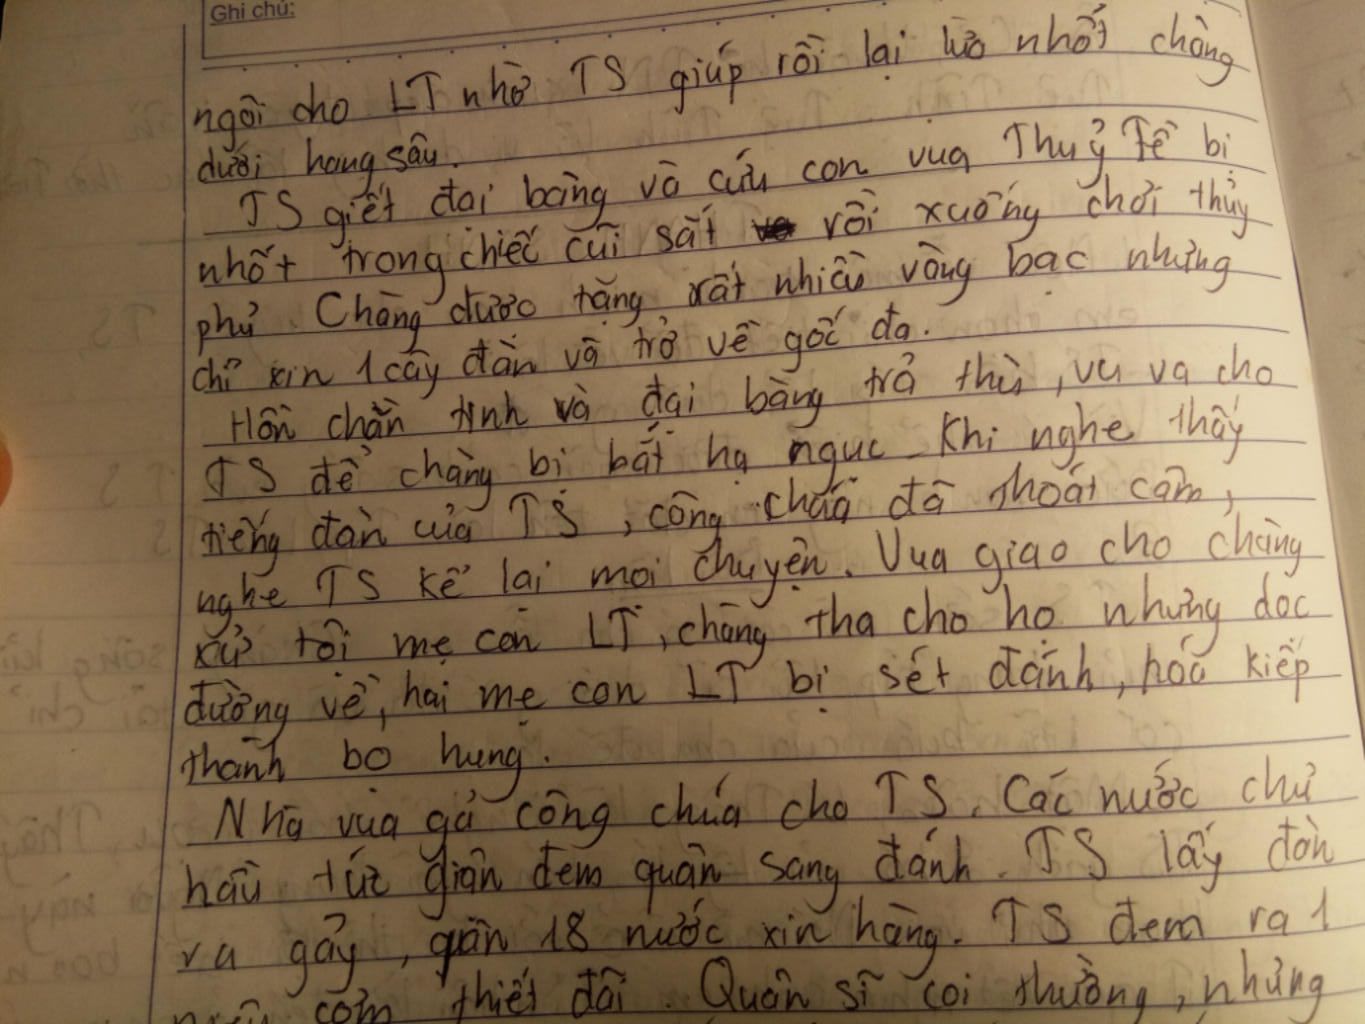 Ghi chú:
ngôi cho LT nhờ TS giúp rồi lại lừa nhốt chàng
dưới hang sâu.
TS giết đại bàng và cứu con vua Thuỷ Tề bị
nhốt trong chiếc cũi sắt rồi xuống chơi thủy
phủ. Chàng được tặng rất nhiều vàng bạc nhưng
chỉ xin 1 cây đàn và trở về gốc đa.
Hồn chằn tinh và đại bàng trả thù, vu vạ cho
TS để chàng bị bắt hạ ngục. Khi nghe thấy
tiếng đàn của TS, công chúa đã thoát câm,
nghe TS kể lại mọi chuyện. Vua giao cho chàng
xử tội mẹ con LT, chàng tha cho họ nhưng dọc
đường về, hai mẹ con LT bị sét đánh, hóa kiếp
thành bọ hung.
Nhà vua gả công chúa cho TS. Các nước chư
hầu tức giận đem quân sang đánh. TS lấy đàn
ra gảy, quân 18 nước xin hàng. TS đem ra 1
niêu cơm thiết đãi. Quân sĩ coi thường, nhưng